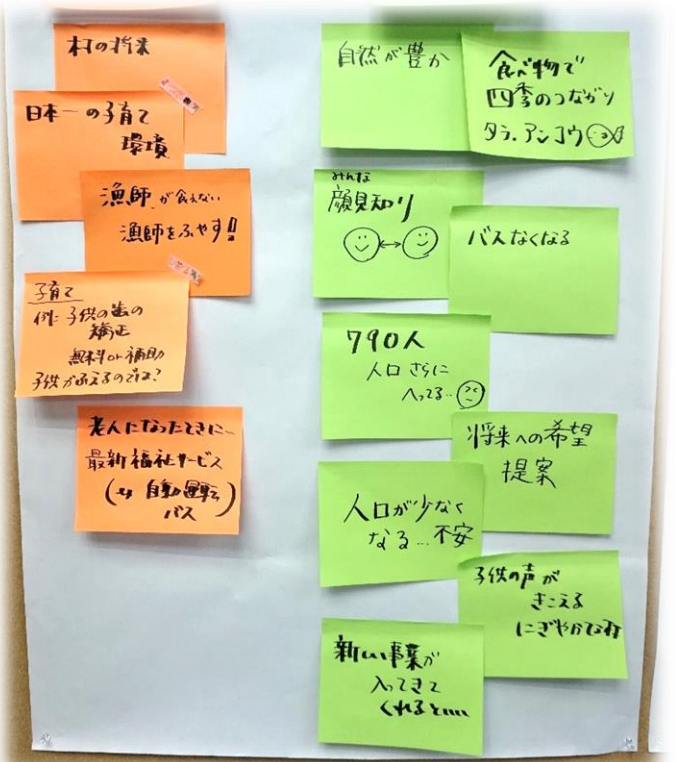 村の将来
日本一の子育て
環境
漁師が食えない
漁師をふやす!!
子育て
例に子供の歯の
矯正
無料or補助
子供がふえるのでは?
老人になったときに…
最新福祉サービス
自動運転
バス
自然が豊か
食べ物で
四季のつながり
タラ.アンコウ
みんな
顔見知り
バスなくなる
790人
人口さらに
へってる…
将来への希望
提案
人口が少なく
なる…不安
子供の声が
きこえる
にぎやかな村
新しい事業が
入ってきて
くれると……